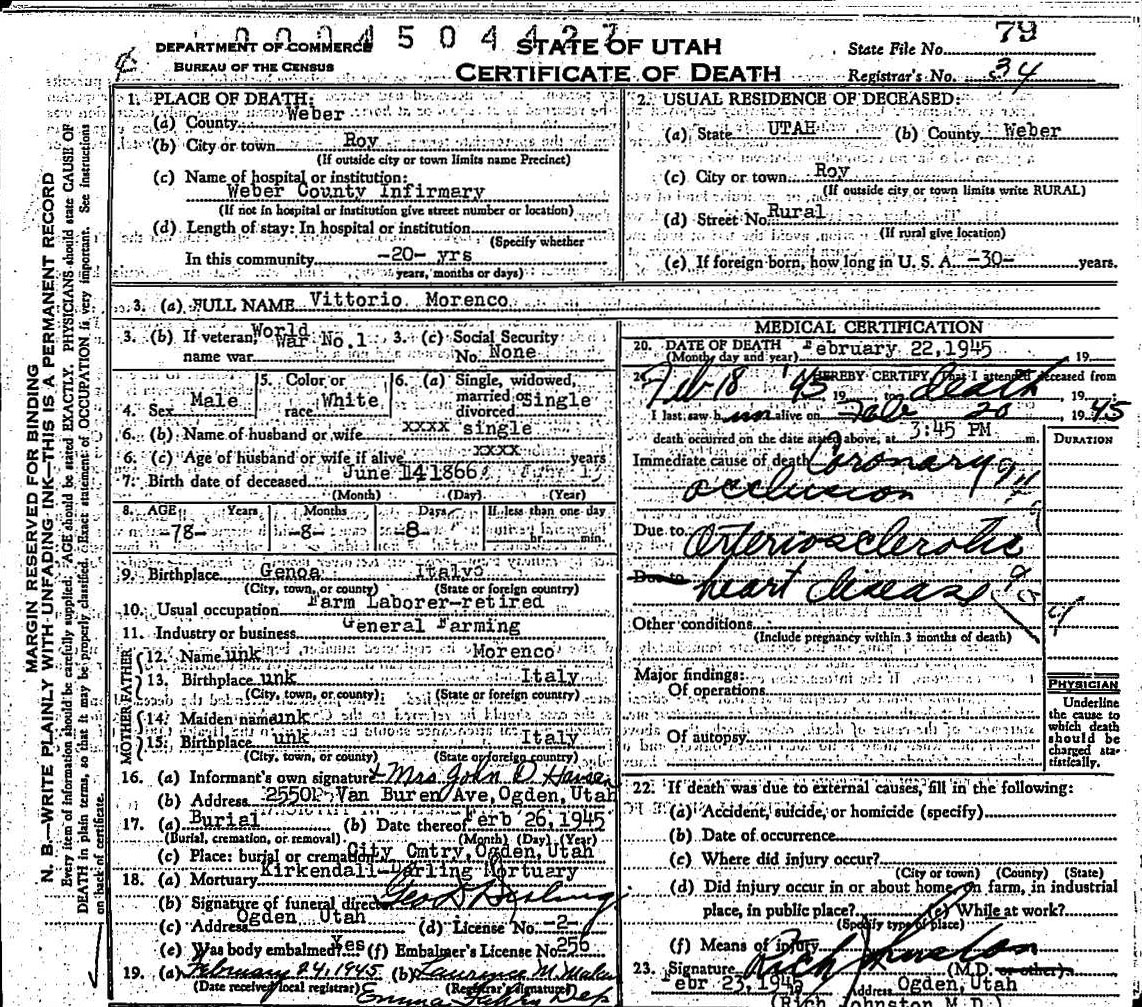 0004504427
DEPARTMENT OF COMMERCE
BUREAU OF THE CENSUS
STATE OF UTAH
CERTIFICATE OF DEATH
State File No. 79
Registrar's No. 34
MARGIN RESERVED FOR BINDING
N. B.—WRITE PLAINLY WITH UNFADING INK—THIS IS A PERMANENT RECORD
Every item of information should be carefully supplied. AGE should be stated EXACTLY. PHYSICIANS should state CAUSE OF
DEATH in plain terms, so that it may be properly classified. Exact statement of OCCUPATION is very important. See instructions
on back of certificate.
1. PLACE OF DEATH:
(a) County Weber
(b) City or town Roy
(If outside city or town limits name Precinct)
(c) Name of hospital or institution:
Weber County Infirmary
(If not in hospital or institution give street number or location)
(d) Length of stay: In hospital or institution
(Specify whether
In this community -20- yrs
years, months or days)
2. USUAL RESIDENCE OF DECEASED:
(a) State UTAH (b) County Weber
(c) City or town Roy
(If outside city or town limits write RURAL)
(d) Street No. Rural
(If rural give location)
(e) If foreign born, how long in U. S. A. -30- years.
3. (a) FULL NAME Vittorio Morenco
3. (b) If veteran, World War No.1
name war
3. (c) Social Security
No. None
4. Sex Male
5. Color or
race White
6. (a) Single, widowed,
married or
divorced Single
6. (b) Name of husband or wife xxxx single
6. (c) Age of husband or wife if alive xxxx years
7. Birth date of deceased June 14 1866
(Month) (Day) (Year)
8. AGE: Years Months Days If less than one day
-78- -8- -8- hr. min.
9. Birthplace Genoa Italy
(City, town, or county) (State or foreign country)
10. Usual occupation Farm Laborer-retired
11. Industry or business General Farming
FATHER
12. Name unk Morenco
13. Birthplace unk Italy
(City, town, or county) (State or foreign country)
MOTHER
14. Maiden name unk
15. Birthplace unk Italy
(City, town, or county) (State or foreign country)
16. (a) Informant's own signature Mrs John D Hansen
(b) Address Van Buren Ave, Ogden, Utah
17. (a) Burial (b) Date thereof Ferb 26, 1945
(Burial, cremation, or removal) (Month) (Day) (Year)
(c) Place: burial or cremation City Cmtry, Ogden, Utah
18. (a) Mortuary Kirkendall-Darling Mortuary
(b) Signature of funeral director Geo D Darling
(c) Address Ogden Utah (d) License No. -2-
(e) Was body embalmed? Yes (f) Embalmer's License No. 256
19. (a) February 24, 1945 (b) Laurence M.
(Date received local registrar) (Registrar's signature)
Emma Dep
MEDICAL CERTIFICATION
20. DATE OF DEATH February 22, 1945
(Month, day and year) 19
I HEREBY CERTIFY That I attended deceased from
Feb 18 '45 19 to death 19
I last saw him alive on Feb 20 1945
death occurred on the date stated above, at 3:45 PM m.
DURATION
Immediate cause of death Coronary
occlusion
Due to Arteriosclerotic
Due to heart disease
Other conditions
(Include pregnancy within 3 months of death)
Major findings:
Of operations
Of autopsy
PHYSICIAN
Underline
the cause to
which death
should be
charged sta-
tistically.
22. If death was due to external causes, fill in the following:
(a) Accident, suicide, or homicide (specify)
(b) Date of occurrence
(c) Where did injury occur?
(City or town) (County) (State)
(d) Did injury occur in or about home, on farm, in industrial
place, in public place? (e) While at work?
(Specify type of place)
(f) Means of injury
23. Signature Rich Johnston (M.D. or other)
Febr 23, 1945 Address Ogden, Utah
(Rich Johnston M.D.)